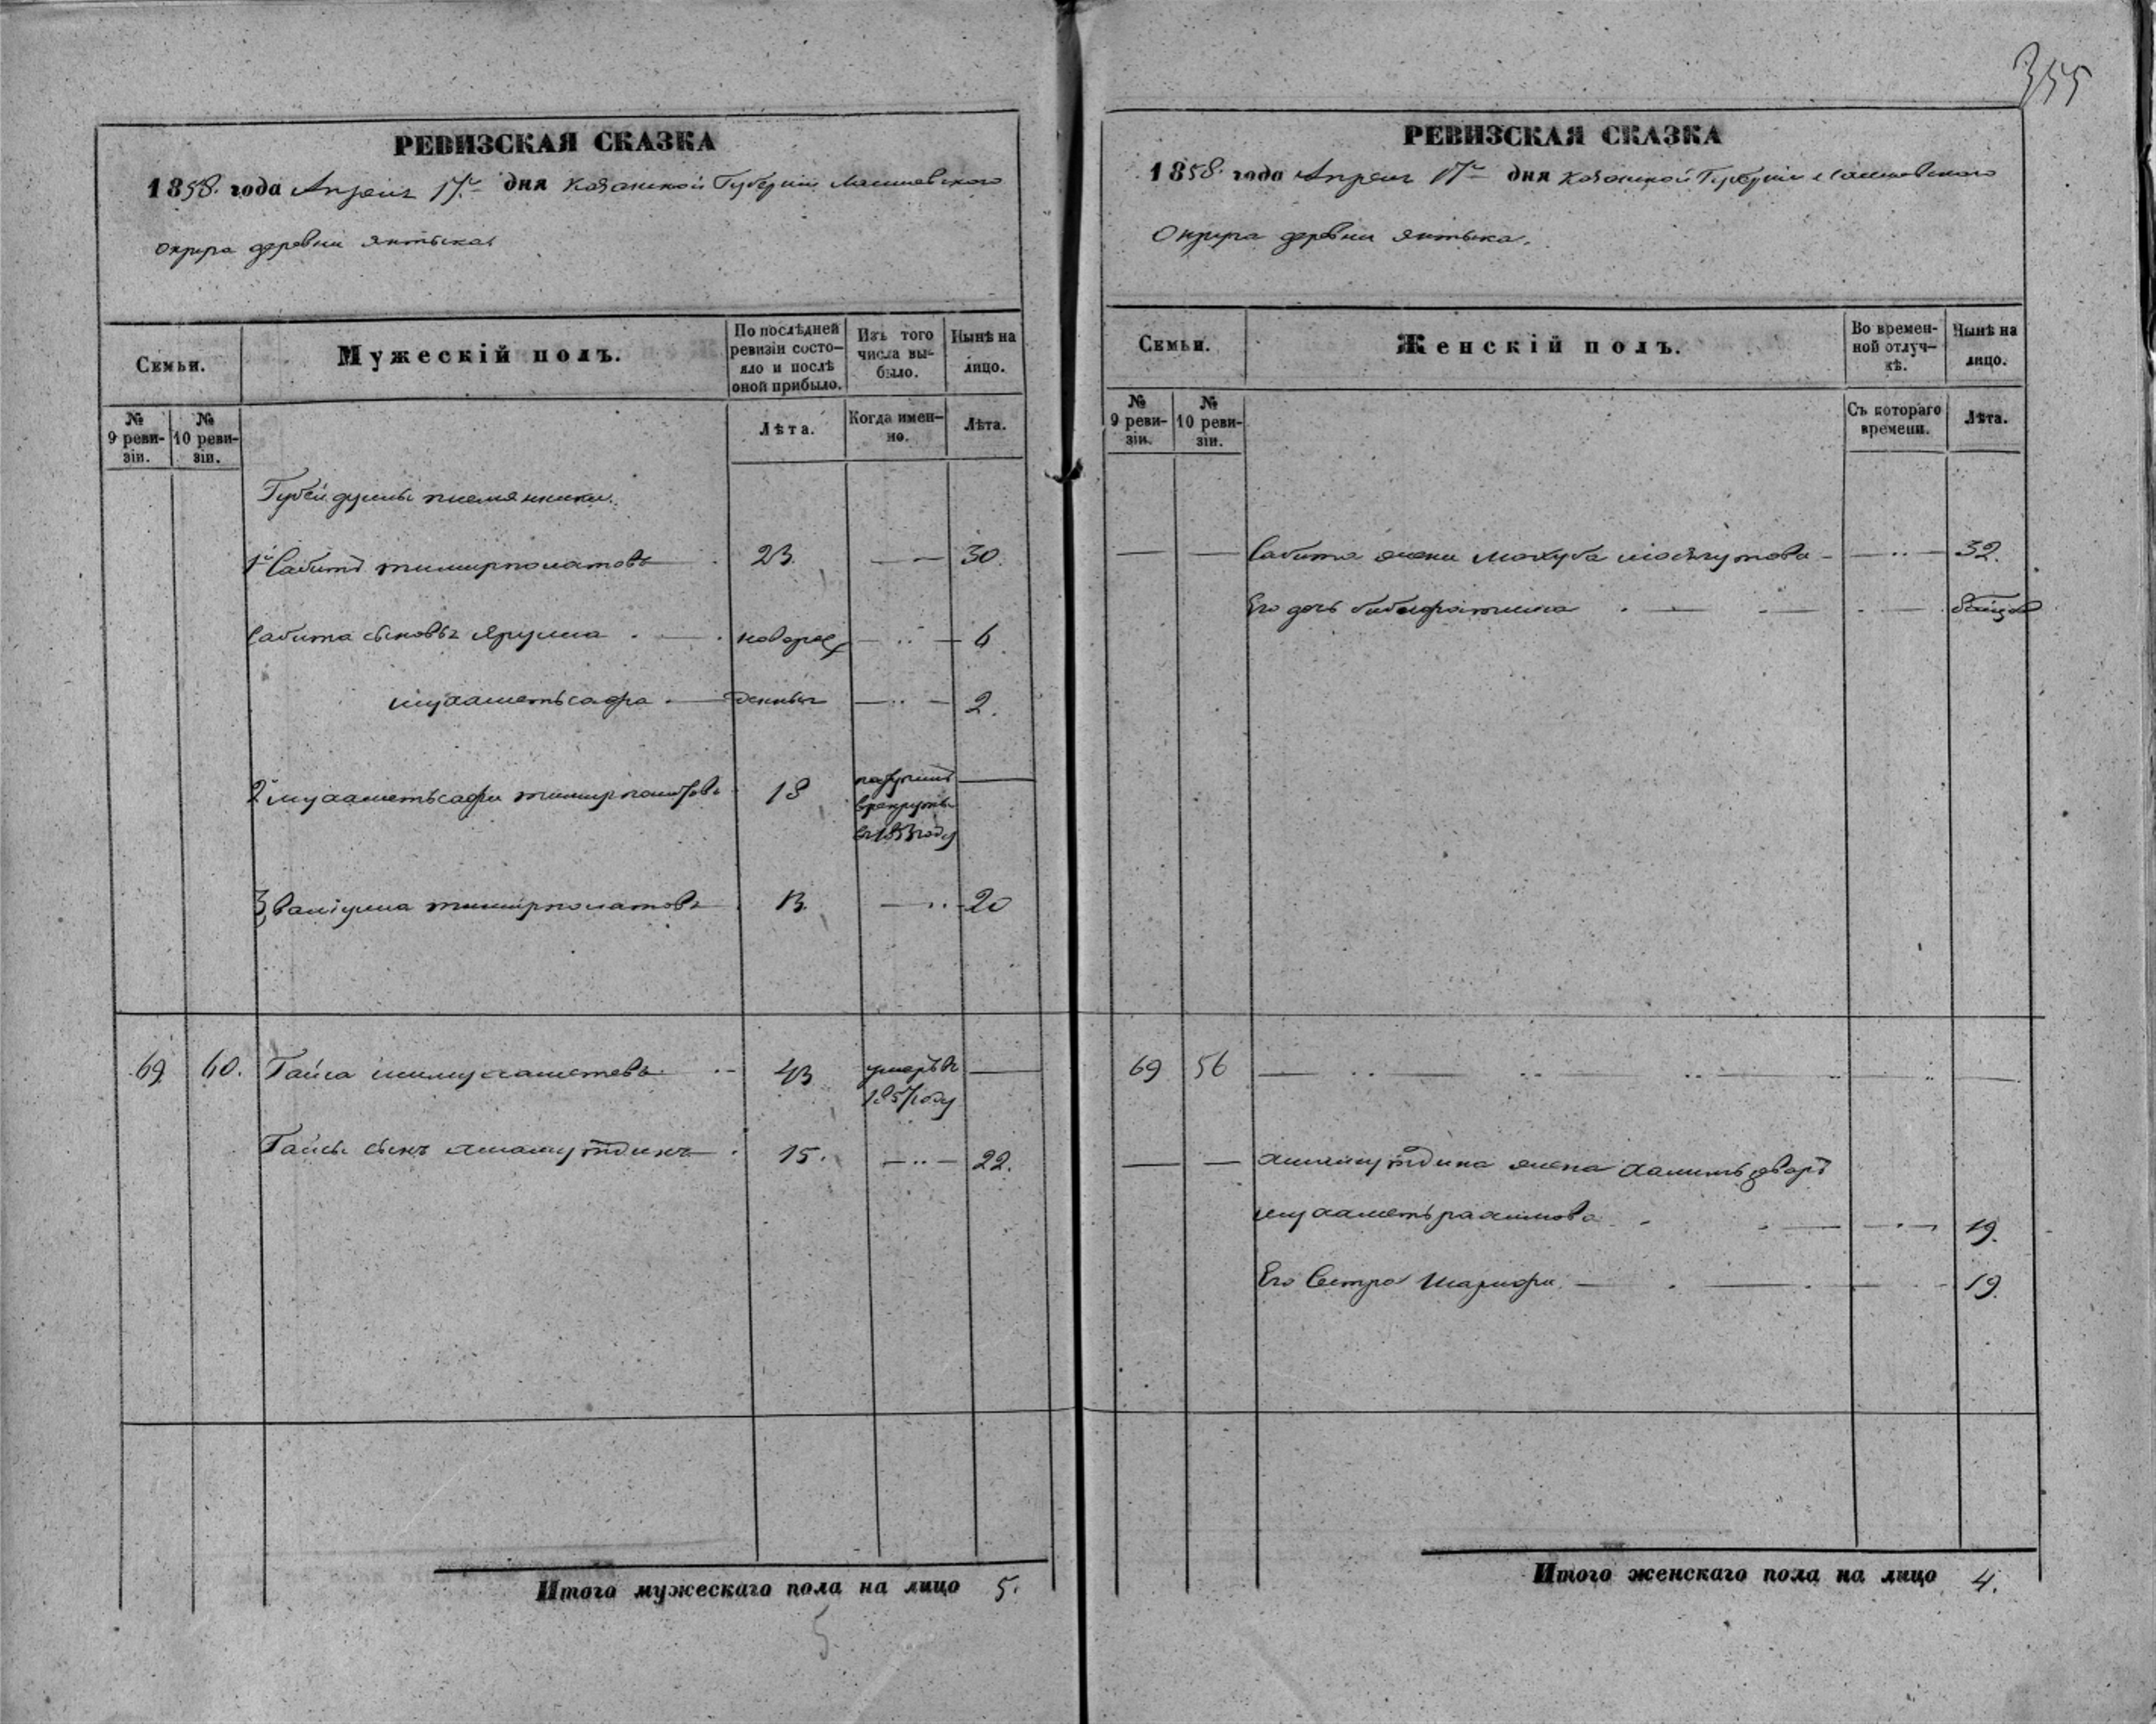 355
РЕВИЗСКАЯ СКАЗКА
1858. года Апреля 17го дня Казанской Губернiи Лаишевского
округа деревни Янтыка
Семьи.
Мужескій полъ.
По послѣдней ревизіи состояло и послѣ оной прибыло.
Изъ того числа выбыло.
Нынѣ на лицо.
№ 9 ревизіи.
№ 10 ревизіи.
Лѣта.
Когда именно.
Лѣта.
Губейдуллы племянники.
1й Сабитъ Тимирполатовъ 23. 30.
Сабита сыновья Ярулла новорож 6
Мухаметьсафа денные 2.
2й Мухаметьсафи Тимирполатовъ 18 рекруты в 1853 году
3 Валiулла Тимирполатовъ 13. 20
69. 60. Гайса 43 умеръ в 1857 году
Гайсы сынъ 15. 22.
Итого мужескаго пола на лицо 5.
5
РЕВИЗСКАЯ СКАЗКА
1858. года Апреля 17го дня Казанской Губернiи Лаишевского
Округа деревни Янтыка.
Семьи.
Женскій полъ.
Во временной отлучкѣ.
Нынѣ на лицо.
№ 9 ревизіи.
№ 10 ревизіи.
Съ котораго времени.
Лѣта.
Сабита жена Махуба 32.
Его дочь Бибифатима
69 56
жена
Мухаметьрахимова 19.
Его Сестра Шарифа 19.
Итого женскаго пола на лицо 4.